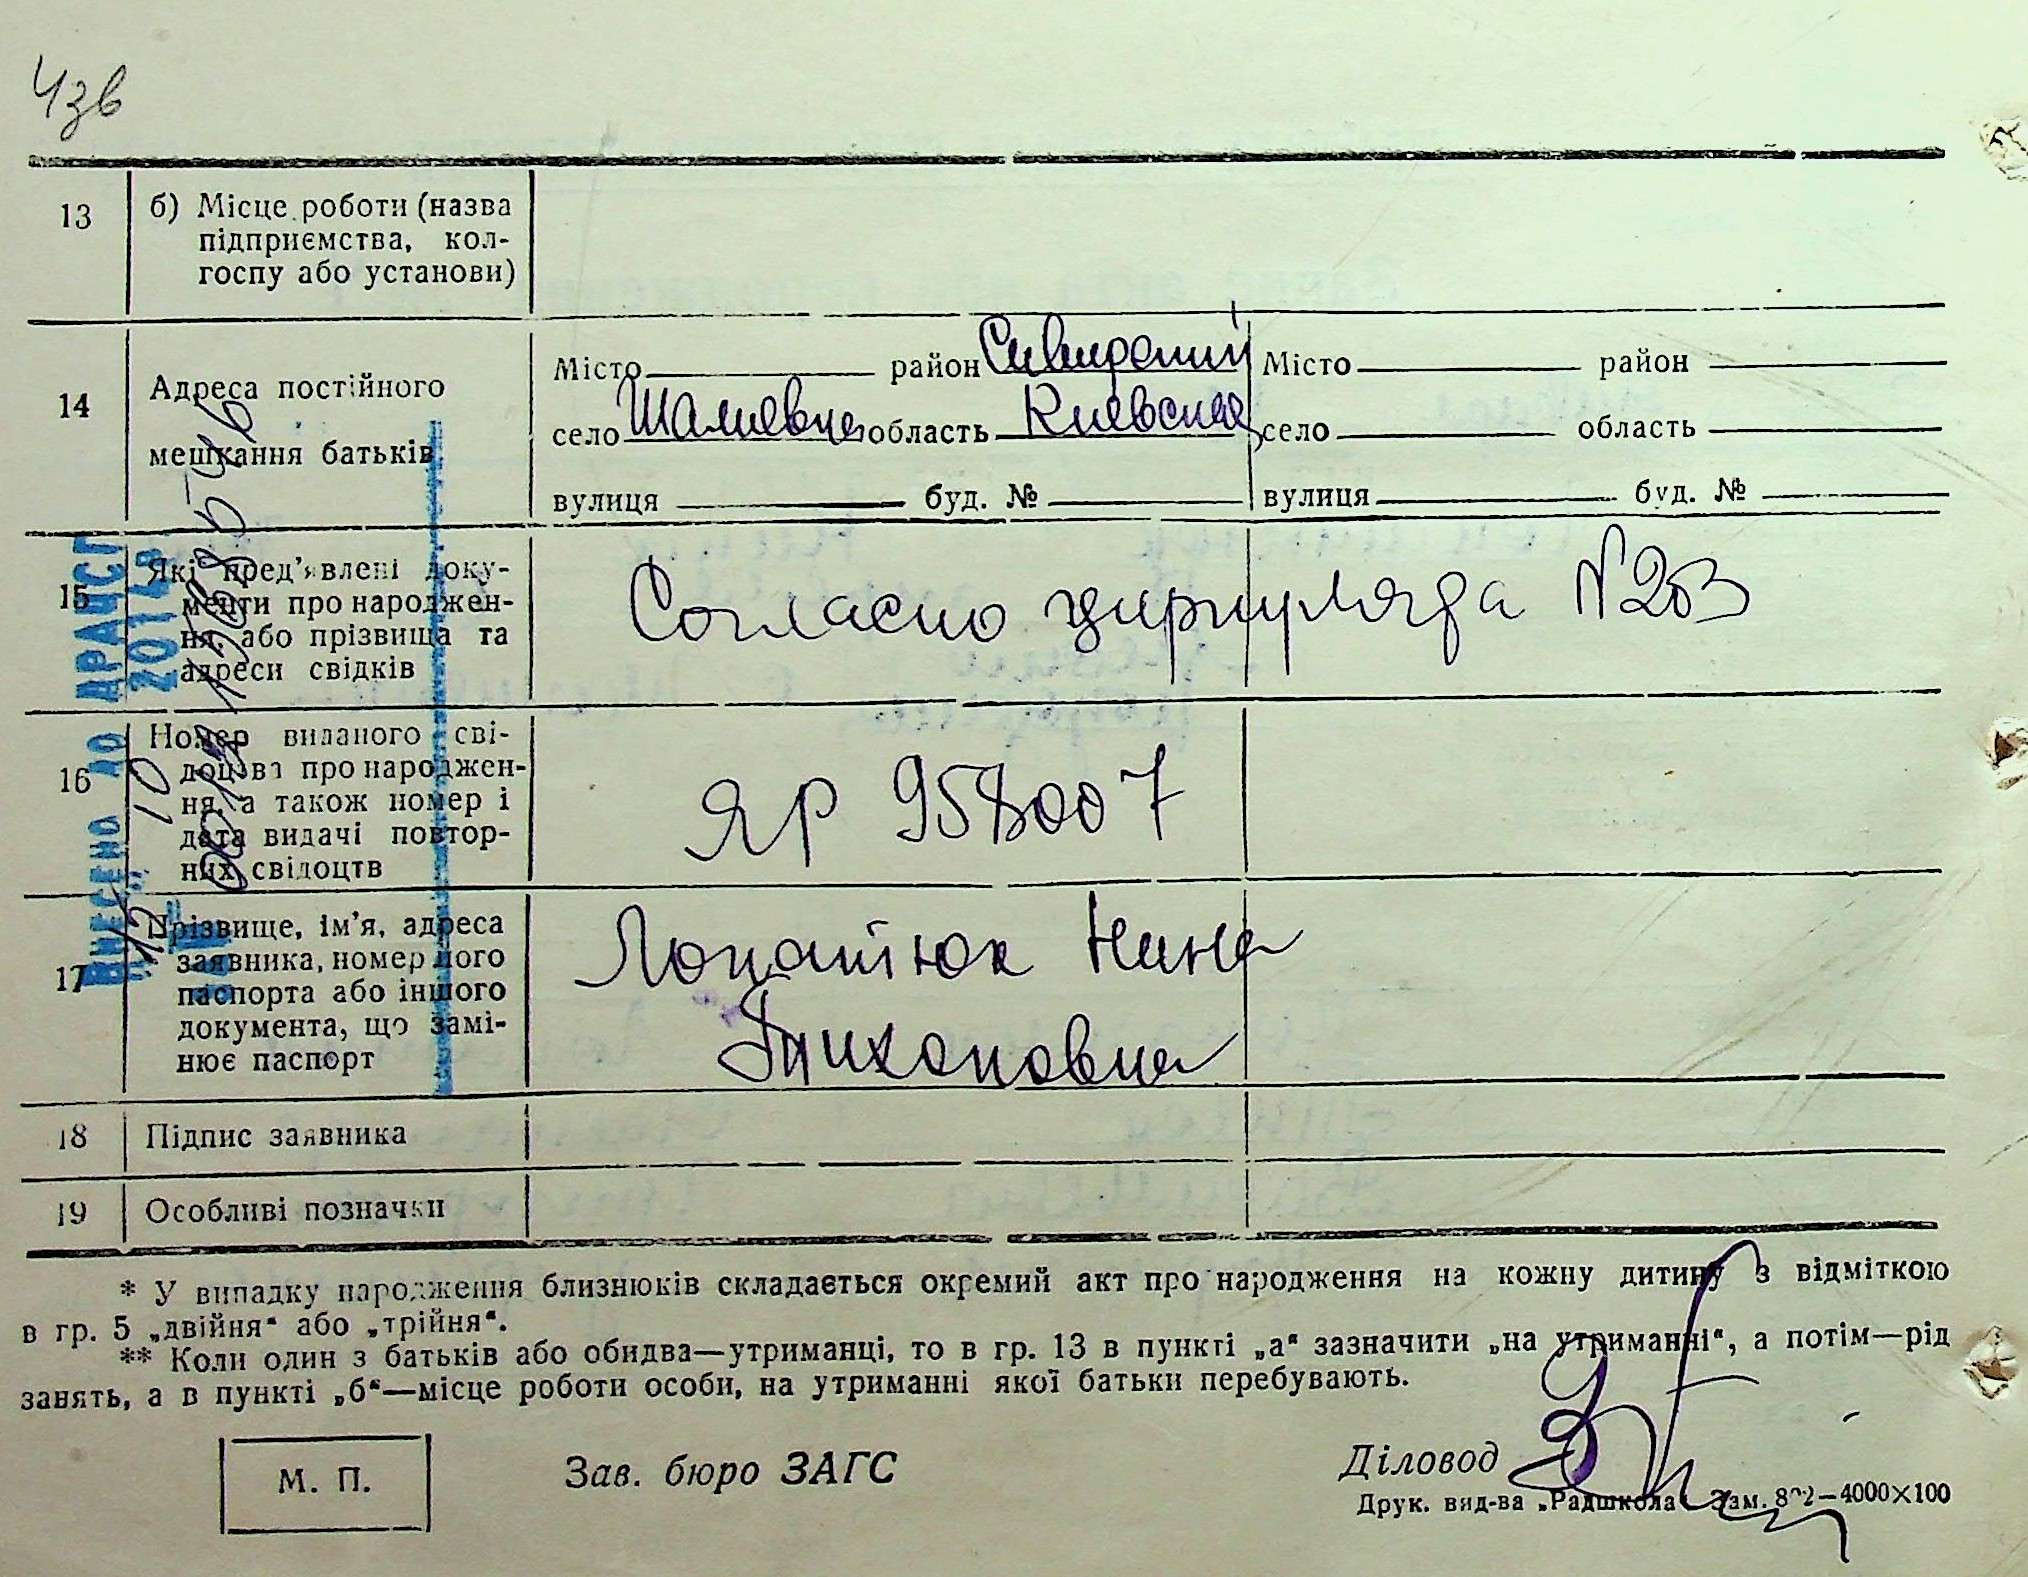 4зв
13 б) Місце роботи (назва
підприємства, кол-
госпу або установи)
14 Адреса постійного
мешкання батьків
Місто район Сквирский
село Шалиевка область Киевская
вулиця буд. №
Місто район
село область
вулиця буд. №
15 Які пред'явлені доку-
менти про народжен-
ня, або прізвища та
адреси свідків
Согласно циркуляра N203
16 Номер виданого сві-
доцтва про народжен-
ня, а також номер і
дата видачі повтор-
них свідоцтв
ЯР 958007
17 Прізвище, ім'я, адреса
заявника, номер його
паспорта або іншого
документа, що замі-
нює паспорт
Лопатюк Нина
Тихоновна
18 Підпис заявника
19 Особливі позначки
ВНЕСЕНО ДО ДРАЦСГ
"12" 10 2014 р
* У випадку народження близнюків складається окремий акт про народження на кожну дитину з відміткою
в гр. 5 „двійня“ або „трійня“.
** Коли один з батьків або обидва—утриманці, то в гр. 13 в пункті „а“ зазначити „на утриманні“, а потім—рід
занять, а в пункті „б“—місце роботи особи, на утриманні якої батьки перебувають.
М. П.
Зав. бюро ЗАГС
Діловод
Друк. вид-ва „Радшкола“ Зам. —4000×100